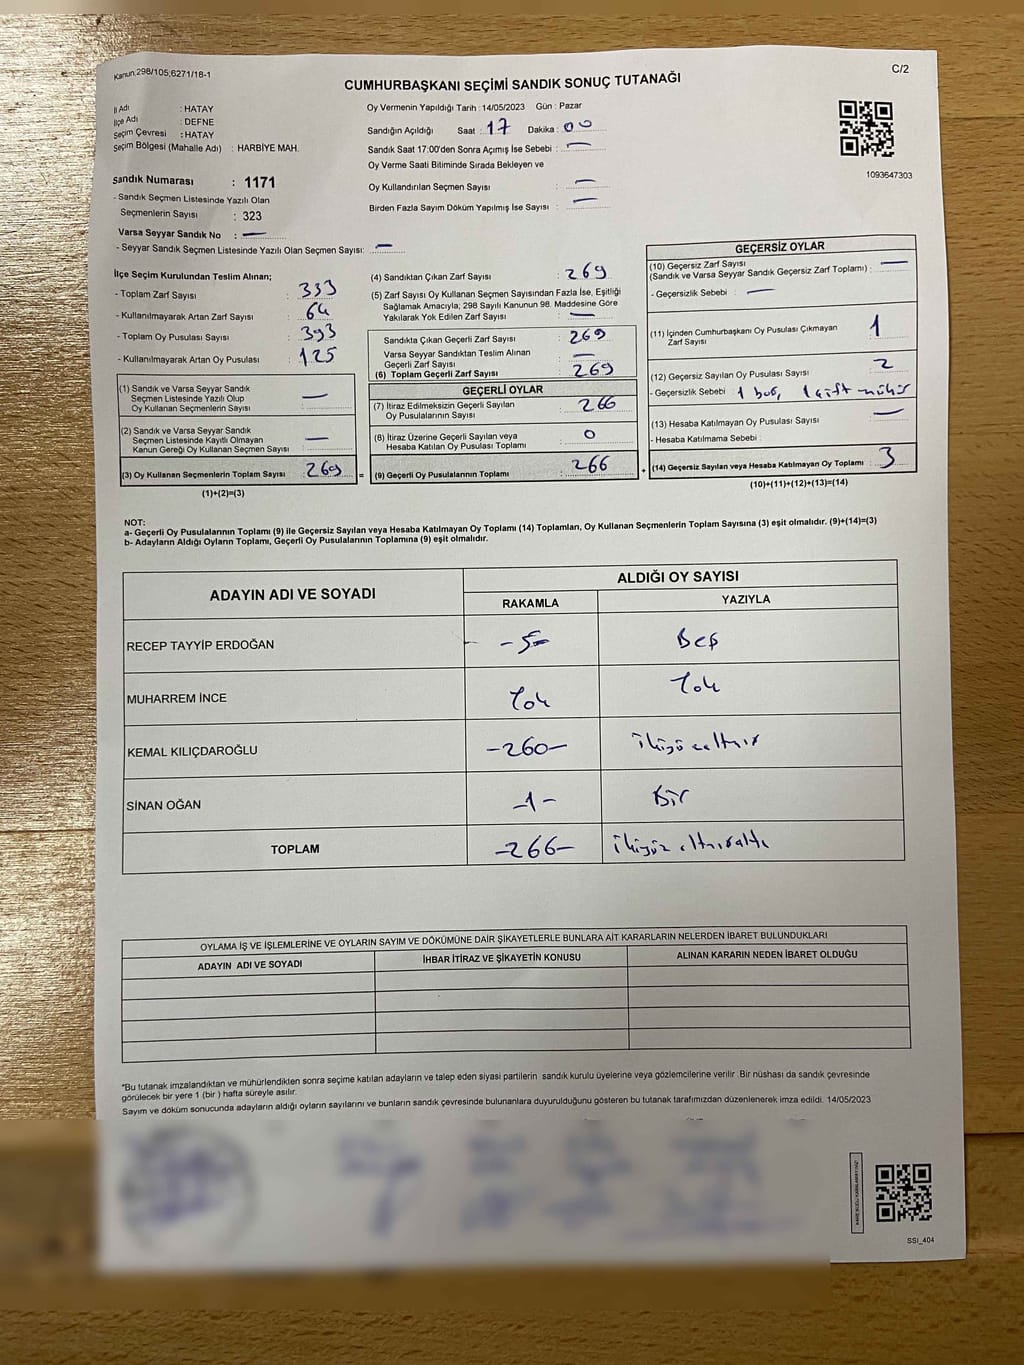 Kanun,298/105,6271/18-1
C/2
CUMHURBAŞKANI SEÇİMİ SANDIK SONUÇ TUTANAĞI
İl Adı : HATAY
İlçe Adı : DEFNE
Seçim Çevresi : HATAY
Seçim Bölgesi (Mahalle Adı) : HARBİYE MAH.
Sandık Numarası : 1171
- Sandık Seçmen Listesinde Yazılı Olan
Seçmenlerin Sayısı : 323
Varsa Seyyar Sandık No : —
- Seyyar Sandık Seçmen Listesinde Yazılı Olan Seçmen Sayısı: —
Oy Vermenin Yapıldığı Tarih : 14/05/2023 Gün : Pazar
Sandığın Açıldığı Saat : 17 Dakika : 00
Sandık Saat 17:00'den Sonra Açımış İse Sebebi : —
Oy Verme Saati Bitiminde Sırada Bekleyen ve
Oy Kullandırılan Seçmen Sayısı : —
Birden Fazla Sayım Döküm Yapılmış İse Sayısı : —
1093647303
İlçe Seçim Kurulundan Teslim Alınan;
- Toplam Zarf Sayısı : 333
- Kullanılmayarak Artan Zarf Sayısı : 64
- Toplam Oy Pusulası Sayısı : 393
- Kullanılmayarak Artan Oy Pusulası : 125
(1) Sandık ve Varsa Seyyar Sandık
Seçmen Listesinde Yazılı Olup
Oy Kullanan Seçmenlerin Sayısı —
(2) Sandık ve Varsa Seyyar Sandık
Seçmen Listesinde Kayıtlı Olmayan
Kanun Gereği Oy Kullanan Seçmen Sayısı —
(3) Oy Kullanan Seçmenlerin Toplam Sayısı : 269
(1)+(2)=(3)
(4) Sandıktan Çıkan Zarf Sayısı : 269
(5) Zarf Sayısı Oy Kullanan Seçmen Sayısından Fazla İse, Eşitliği
Sağlamak Amacıyla; 298 Sayılı Kanunun 98. Maddesine Göre
Yakılarak Yok Edilen Zarf Sayısı : —
Sandıkta Çıkan Geçerli Zarf Sayısı : 269
Varsa Seyyar Sandıktan Teslim Alınan
Geçerli Zarf Sayısı : —
(6) Toplam Geçerli Zarf Sayısı : 269
GEÇERLİ OYLAR
(7) İtiraz Edilmeksizin Geçerli Sayılan
Oy Pusulalarının Sayısı : 266
(8) İtiraz Üzerine Geçerli Sayılan veya
Hesaba Katılan Oy Pusulası Toplamı : 0
= (9) Geçerli Oy Pusulalarının Toplamı : 266
GEÇERSİZ OYLAR
(10) Geçersiz Zarf Sayısı
(Sandık ve Varsa Seyyar Sandık Geçersiz Zarf Toplamı) : —
- Geçersizlik Sebebi : —
(11) İçinden Cumhurbaşkanı Oy Pusulası Çıkmayan
Zarf Sayısı 1
(12) Geçersiz Sayılan Oy Pusulası Sayısı : 2
- Geçersizlik Sebebi : 1 boş, 1 çift mühür
(13) Hesaba Katılmayan Oy Pusulası Sayısı : —
- Hesaba Katılmama Sebebi :
+ (14) Geçersiz Sayılan veya Hesaba Katılmayan Oy Toplamı : 3
(10)+(11)+(12)+(13)=(14)
NOT:
a- Geçerli Oy Pusulalarının Toplamı (9) ile Geçersiz Sayılan veya Hesaba Katılmayan Oy Toplamı (14) Toplamları, Oy Kullanan Seçmenlerin Toplam Sayısına (3) eşit olmalıdır. (9)+(14)=(3)
b- Adayların Aldığı Oyların Toplamı, Geçerli Oy Pusulalarının Toplamına (9) eşit olmalıdır.
ADAYIN ADI VE SOYADI
ALDIĞI OY SAYISI
RAKAMLA YAZIYLA
RECEP TAYYİP ERDOĞAN -5- Beş
MUHARREM İNCE Yok Yok
KEMAL KILIÇDAROĞLU -260- ikiyüzaltmış
SİNAN OĞAN -1- Bir
TOPLAM -266- ikiyüz altmışaltı
OYLAMA İŞ VE İŞLEMLERİNE VE OYLARIN SAYIM VE DÖKÜMÜNE DAİR ŞİKAYETLERLE BUNLARA AİT KARARLARIN NELERDEN İBARET BULUNDUKLARI
ADAYIN ADI VE SOYADI İHBAR İTİRAZ VE ŞİKAYETİN KONUSU ALINAN KARARIN NEDEN İBARET OLDUĞU
*Bu tutanak imzalandıktan ve mühürlendikten sonra seçime katılan adayların ve talep eden siyasi partilerin sandık kurulu üyelerine veya gözlemcilerine verilir. Bir nüshası da sandık çevresinde
görülecek bir yere 1 (bir ) hafta süreyle asılır.
Sayım ve döküm sonucunda adayların aldığı oyların sayılarını ve bunların sandık çevresinde bulunanlara duyurulduğunu gösteren bu tutanak tarafımızdan düzenlenerek imza edildi. 14/05/2023
SSİ_404